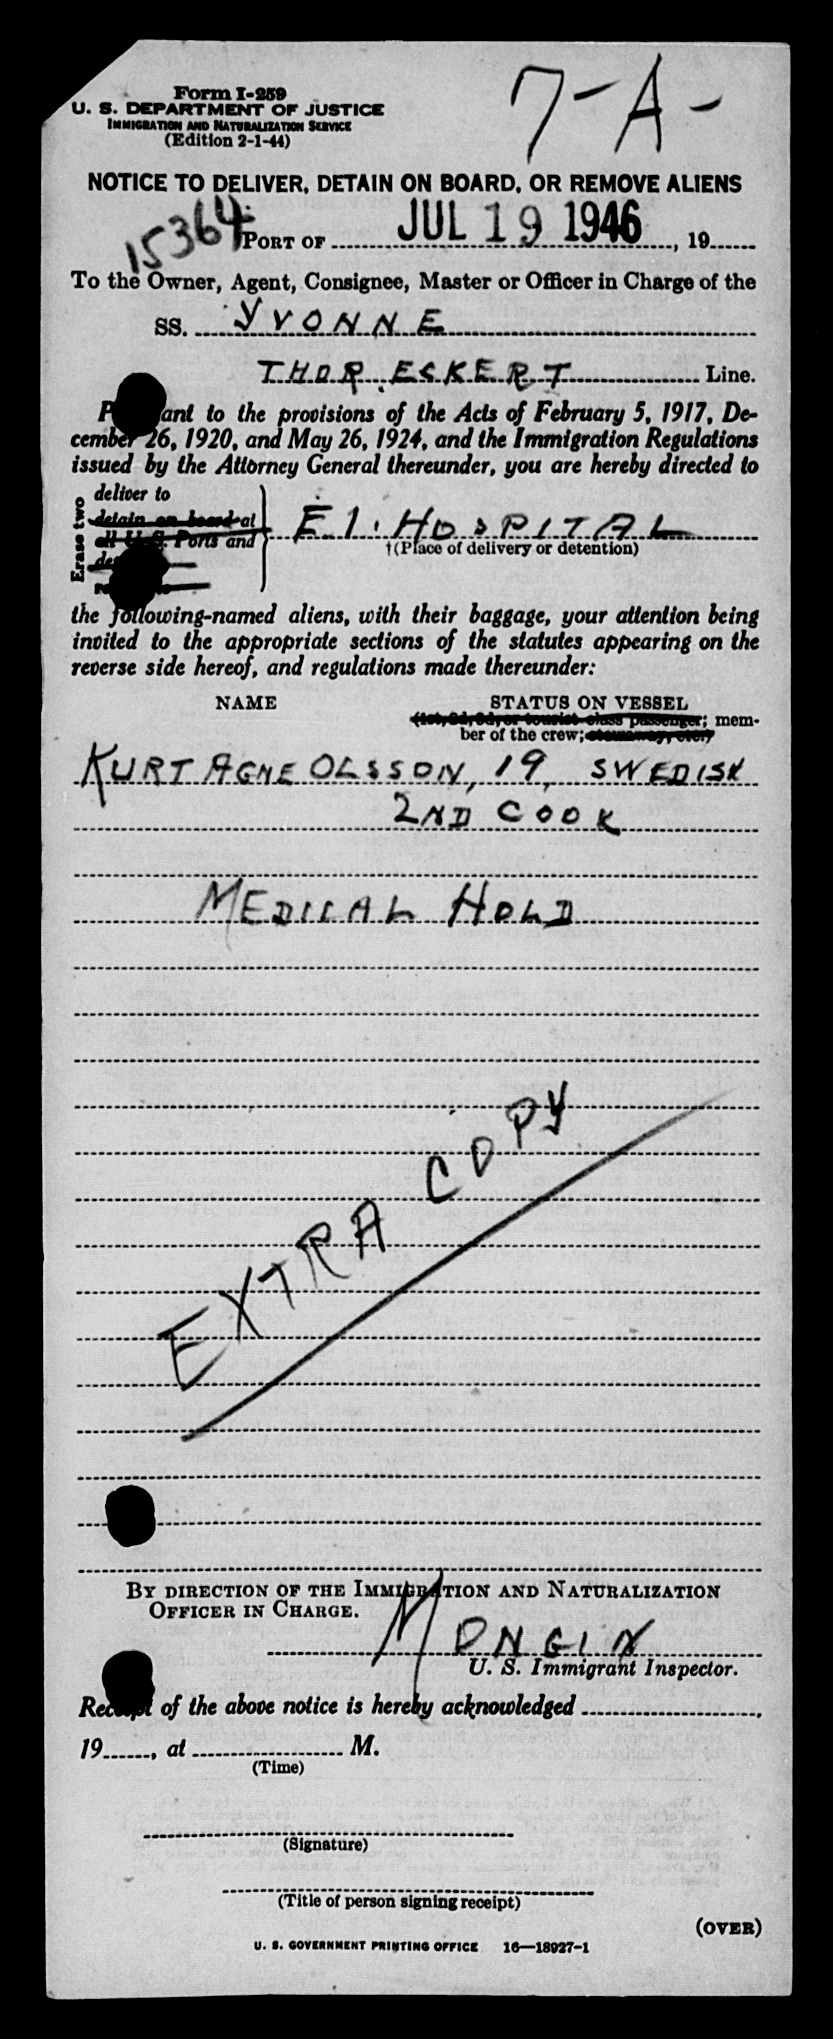 Form I-259
U. S. DEPARTMENT OF JUSTICE
IMMIGRATION AND NATURALIZATION SERVICE
(Edition 2-1-44)
7-A-
NOTICE TO DELIVER, DETAIN ON BOARD, OR REMOVE ALIENS
15364
PORT OF JUL 19 1946, 19
To the Owner, Agent, Consignee, Master or Officer in Charge of the
SS. YVONNE
THOR ECKERT Line.
P ant to the provisions of the Acts of February 5, 1917, De-
cember 26, 1920, and May 26, 1924, and the Immigration Regulations
issued by the Attorney General thereunder, you are hereby directed to
Erase two
deliver to
detain on board at
all U.S. Ports and
de
E.I. HOSPITAL
†(Place of delivery or detention)
the following-named aliens, with their baggage, your attention being
invited to the appropriate sections of the statutes appearing on the
reverse side hereof, and regulations made thereunder:
NAME STATUS ON VESSEL
(1st, 2d, 3d, or tourist class passenger; mem-
ber of the crew; stowaway, etc.)
KURT AGNE OLSSON, 19, SWEDISH
2ND COOK
MEDICAL HOLD
EXTRA COPY
BY DIRECTION OF THE IMMIGRATION AND NATURALIZATION
OFFICER IN CHARGE.
MONGIN
U. S. Immigrant Inspector.
Receipt of the above notice is hereby acknowledged ,
19 , at M.
(Time)
(Signature)
(Title of person signing receipt)
(OVER)
U. S. GOVERNMENT PRINTING OFFICE 16—18927-1